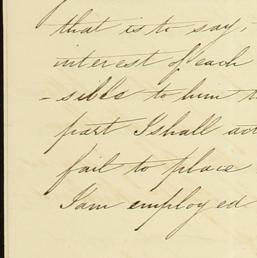 that is to say,
interest of each
- sible to him t
part I shall act
fail to place
I am employed